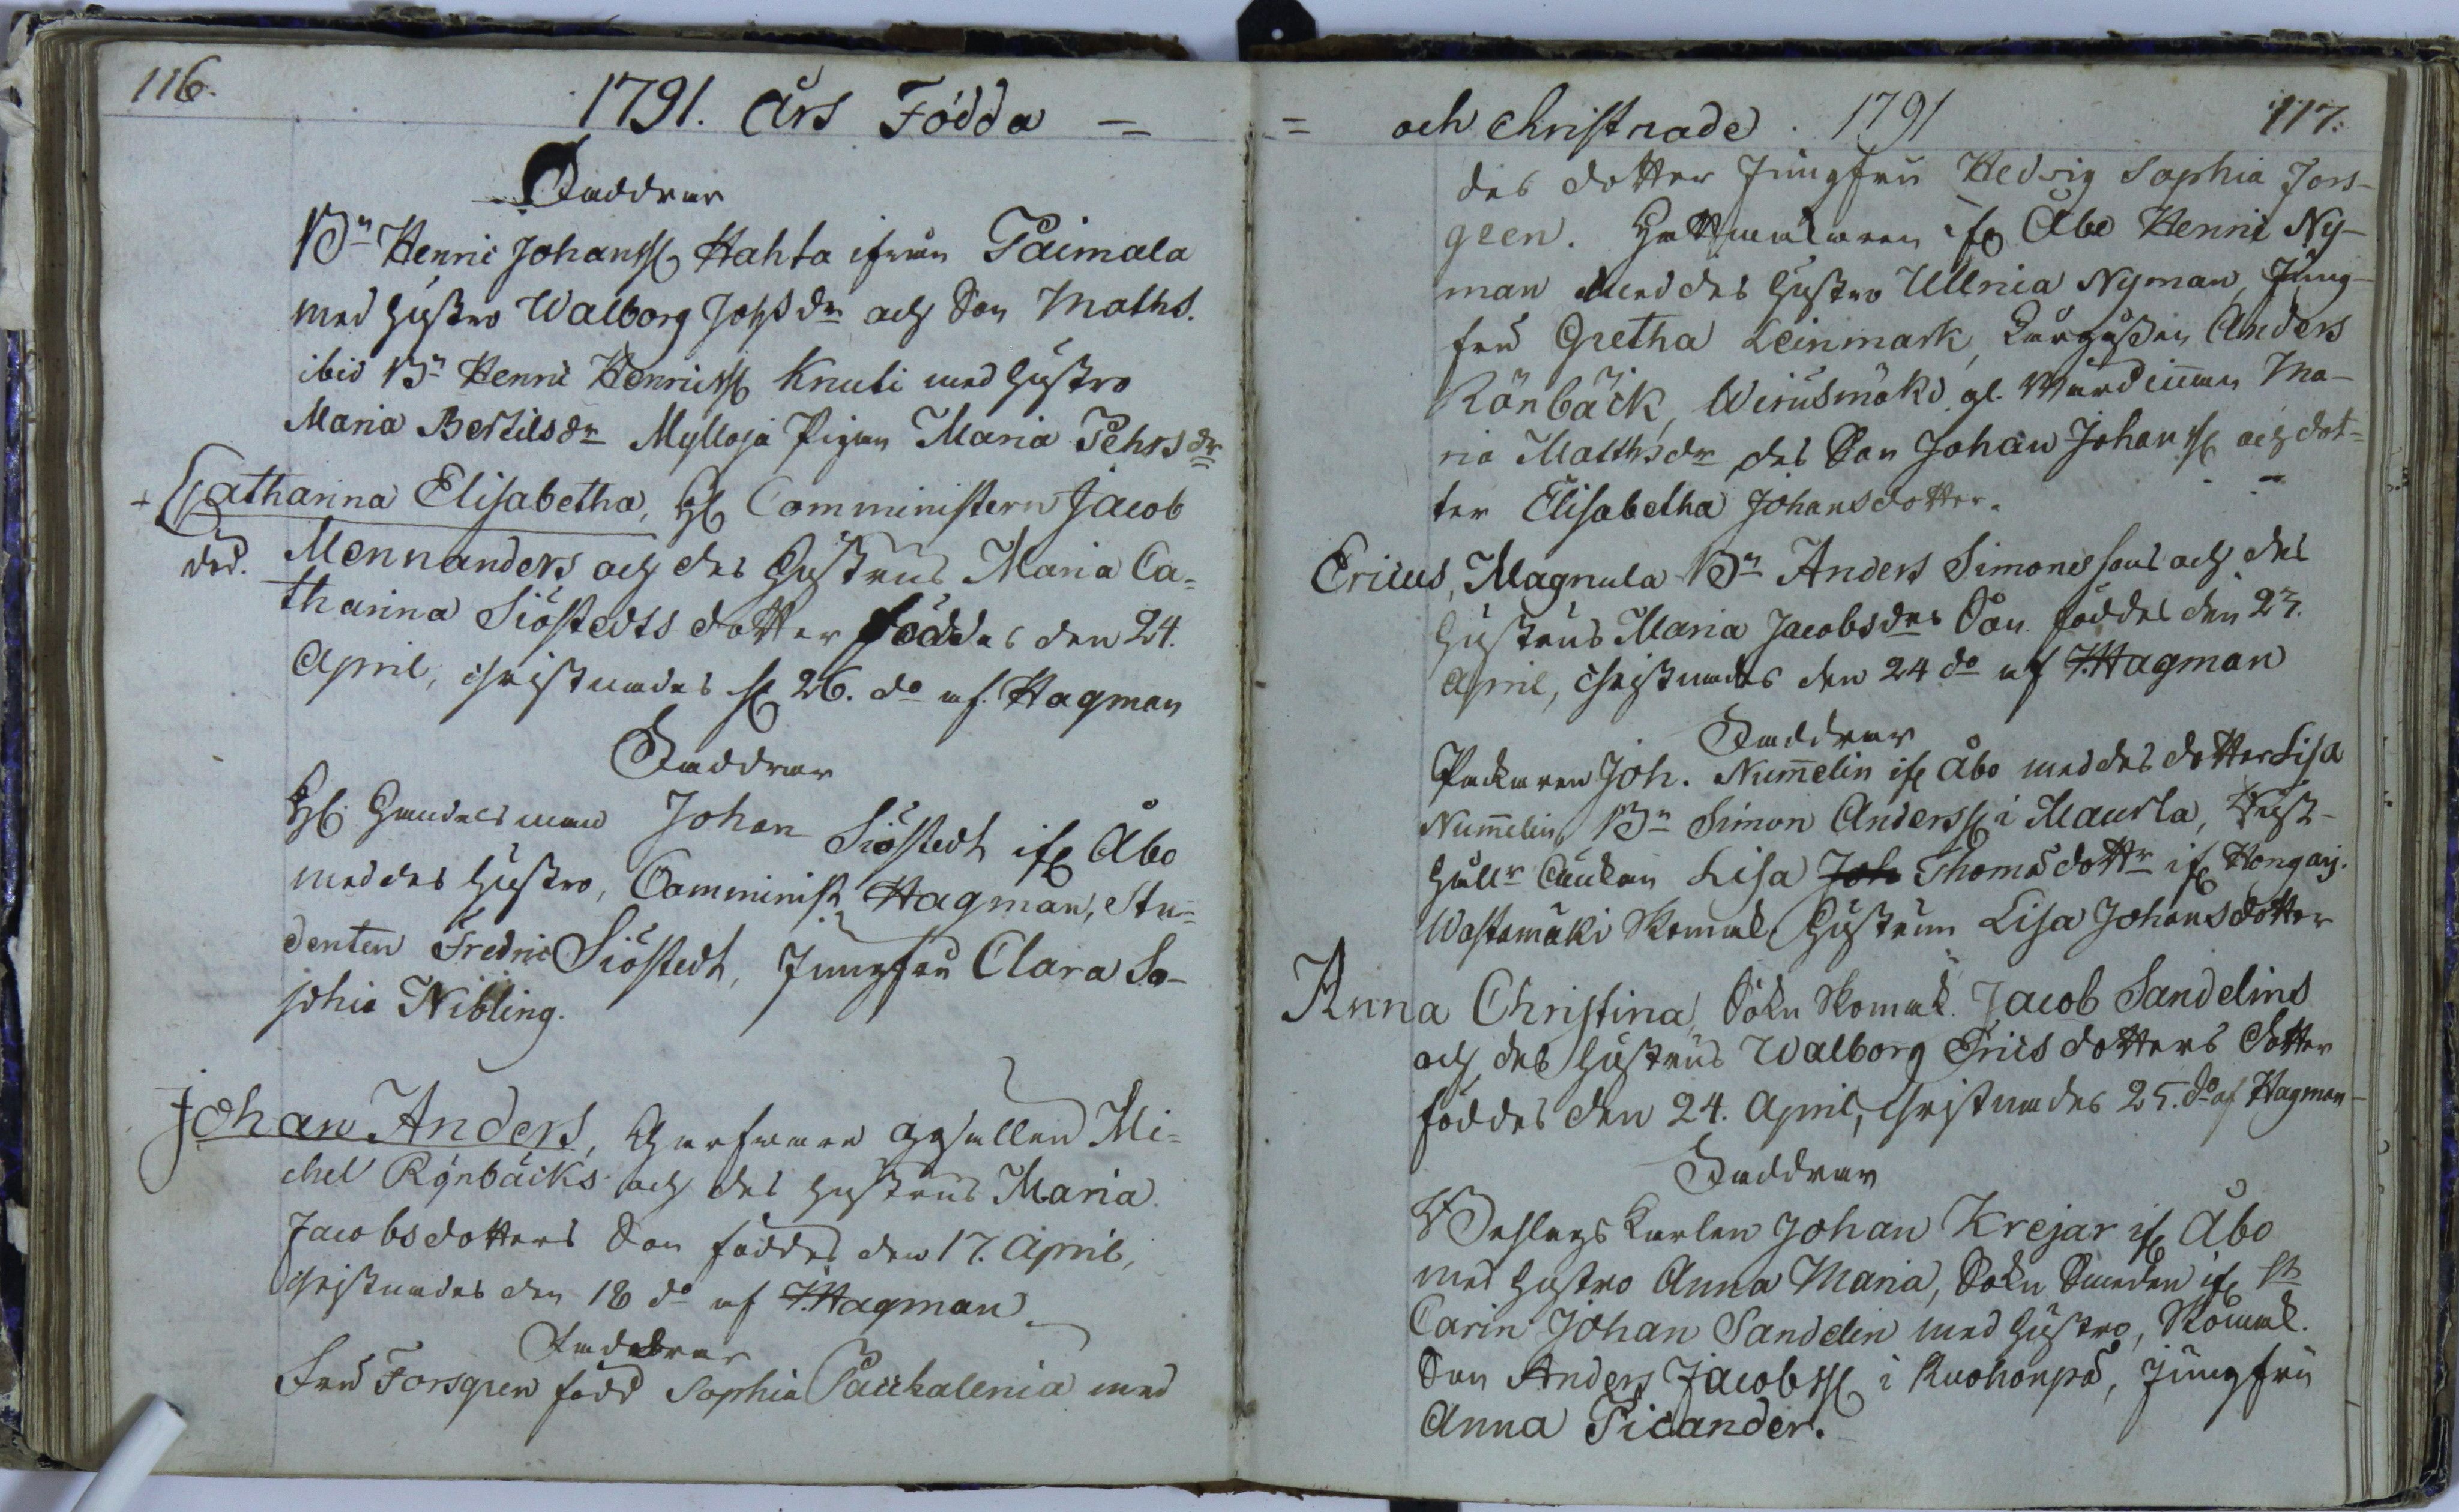 116.
1791. Års Födda =
Faddrar
Bn Henric Johanss Hahta ifrån Paimala
med hustro Walborg Johsdr och Son Maths.
ibid Bn Henric Henricss Knuti med hustro
Maria Bertilsdr Mylloja Pigan Maria Pehrsdr
+ Catharina Elisabetha, H Comministern Jacob
död. Mennanders och des Hustrus Maria Ca=
tharina Siöstedts dotter föddes den 24.
April, christnades d 26. do af Hagman
Faddrar
H Handelsman Johan Siöstedt ifr Åbo
med des hustro, Comminist Hagman, Stu=
denten Fredric Siöstedt, Jungfru Clara So-
phia Nibling.
Johan Anders, Garfware gesellen Mi=
chel Rönbäcks och des hustrus Maria
Jacobsdotters Son föddes den 17. April,
christnades den 18 do af Hagman
Faddrar
Fru Forsgren född Sophia Paukalenia med
= och christnade. 1791 117.
des dotter Jungfru Hedvig Sophia Fors-
green. Hattmakaren ifr Åbo Henric Ny-
man med des hustro Ullrica Nyman, Jung-
fru Gretha Leinmark, Anders
Rönbäck, Wirusmäki gl. Wärdinnan Ma-
ria Matthsdr des Son Johan Johanss och dot=
ter Elisabetha Johansdotter.
Ericus, Magnula Bn Anders Simonssons och des
Hustrus Maria Jacobsdrs Son föddes den 23.
April, christnades den 24 do af Hagman
Faddrar
Packaren Joh. Num̄elin ifr Åbo med des dotter Lisa
Num̄elin, Bn Simon Anderss i Maurla,
Enkan Lisa Joh Thomsdottr ifr
Wastamäki Skomak Hustrun Lisa Johansdotter
Anna Christina, Sokn Skomak. Jacob Sandelins
och des hustrus Walborg Ericsdotters dotter
föddes den 24. April, christnades 25. do af Hagman
Faddrar
Johan Krejar ifr Åbo
med hustro Anna Maria, Sokn Smeden ifr St
Carin Johan Sandelin med hustro, Skomak.
Son Anders Jacobss i Ruohonpä, Jungfru
Anna Picander.